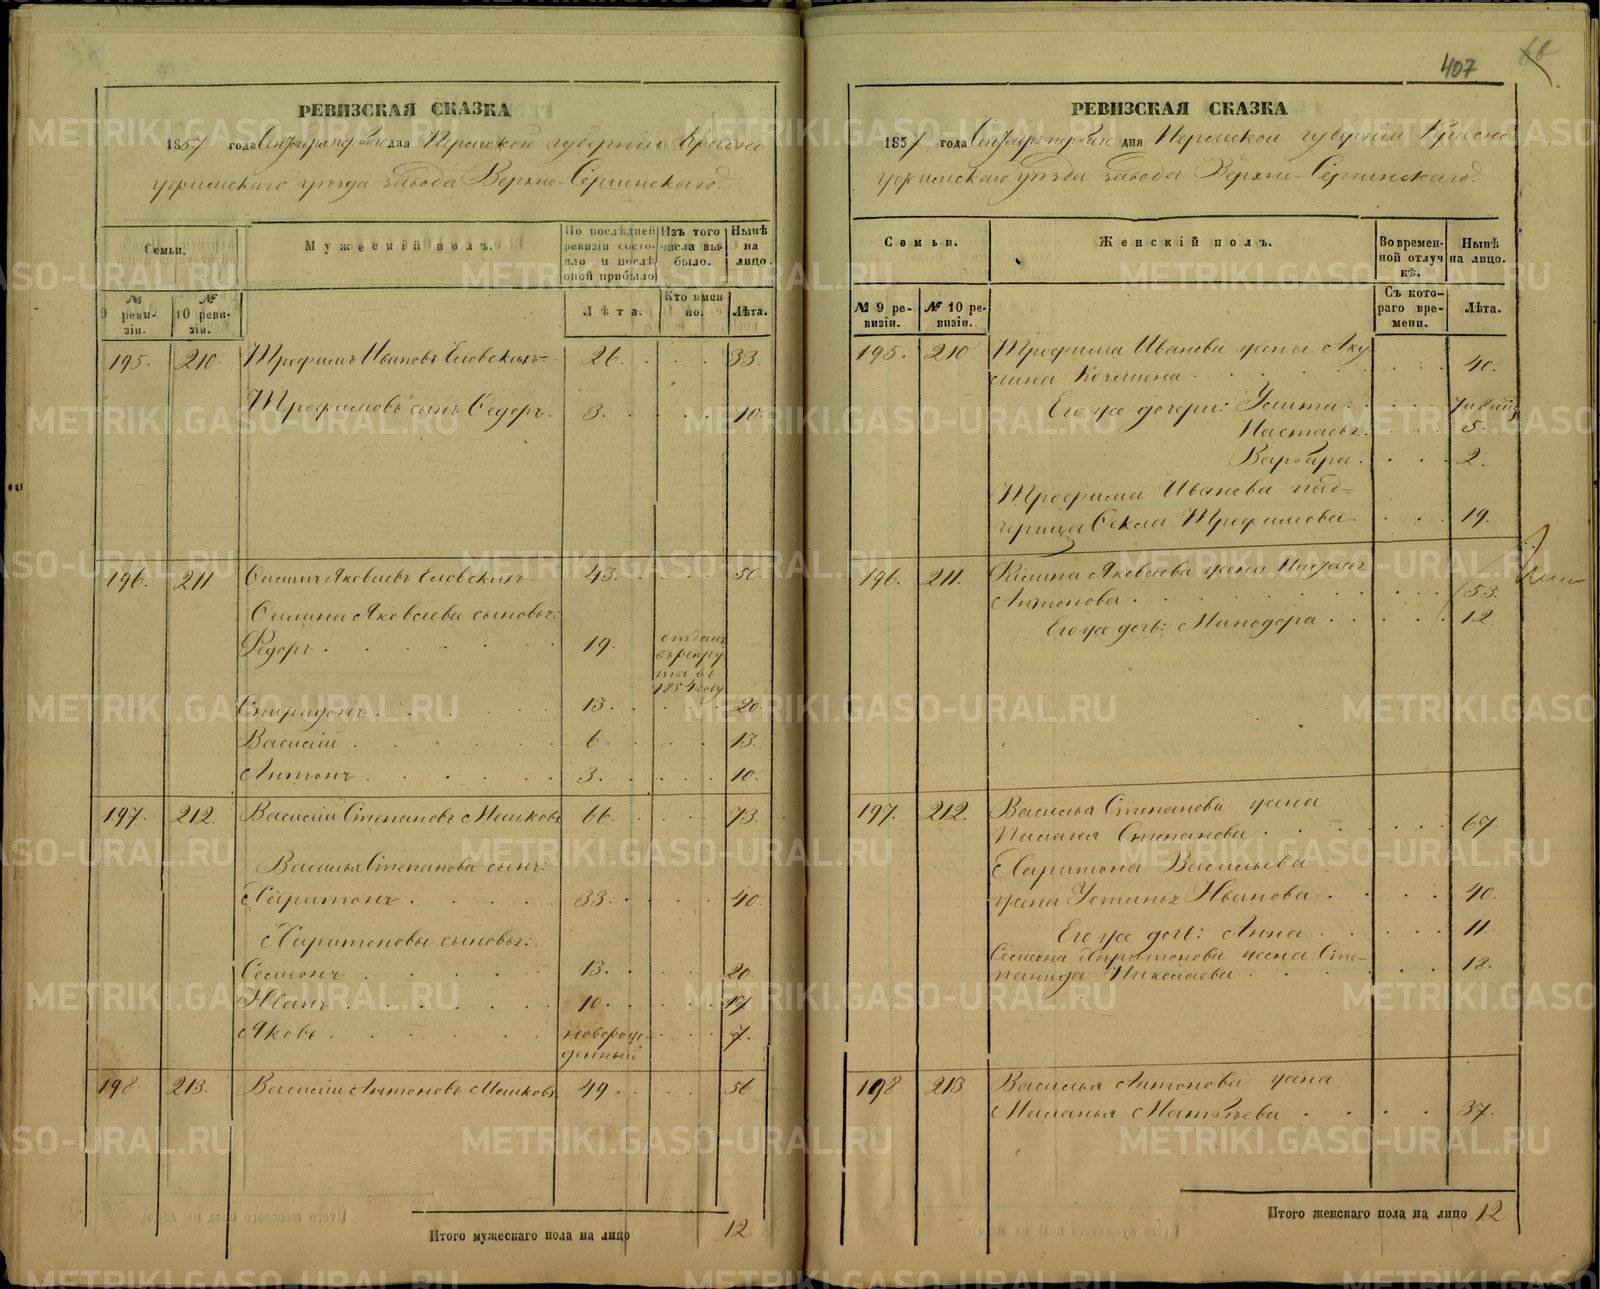 РЕВИЗСКАЯ СКАЗКА
1857 года Сентября первого дня Пермской губернiи Красно
уфимскаго уезда завода Верхне-Сергинскаго.
Семьи.
Мужескiй полъ.
По послѣдней ревизiи состояло и послѣ оной прибыло
Изъ того числа выбыло.
Нынѣ на лицо.
№ 9 ревизiи.
№ 10 ревизiи.
Лѣта.
Кто именно.
Лѣта.
195. 210. Трофимъ Ивановъ Еловскихъ 26. 33.
Трофимовъ сынъ Ѳедоръ. 3. 10.
196. 211 Силинъ Яковлевъ Еловскихъ 43. 50.
Силина Яковлева сыновья:
Ѳедоръ 19. отданъ
въ рекру
ты въ
1854 году
Спиридонъ 13. 20
Василiй 6. 13.
Антонъ 3. 10.
197. 212. Василiй Степановъ Мешковъ 66. 73.
Василья Степанова сынъ:
Харитонъ 33. 40.
Харитоновы сыновья:
Семионъ 13. 20.
Иванъ 10. 17
Яковъ новорож-
денный 7.
198 213. Василiй Антоновъ Мешковъ 49. 56
Итого мужескаго пола на лицо 12
407
РЕВИЗСКАЯ СКАЗКА
1857 года Сентября первого дня Пермской губернiи Красно
уфимскаго уезда завода Верхне-Сергинскаго.
Семьи.
Женскiй полъ.
Во временной отлучкѣ.
Нынѣ на лицо.
№ 9 ревизiи.
№ 10 ревизiи.
Съ котораго времени.
Лѣта.
195. 210 Трофима Иванова жена Аку
лина 40.
Его же дочери: Улита
Настасья 5.
Варвара 2.
Трофима Иванова пад-
черица Ѳекла Трофимова 19.
196. 211. Яковлева жена
Антонова 53.
Его же дочь: Минодора 12
197. 212. Василья Степанова жена
Пилагея Степанова 67.
Харитона Васильева
жена Устинья Иванова 40.
Его же дочь: Анна 11.
Семиона Харитонова жена Сте-
панида Николаева 18.
198 213 Василья Антонова жена
Маланья Матвѣева 37.
Итого женскаго пола на лицо 12.
METRIKI.GASO-URAL.RU